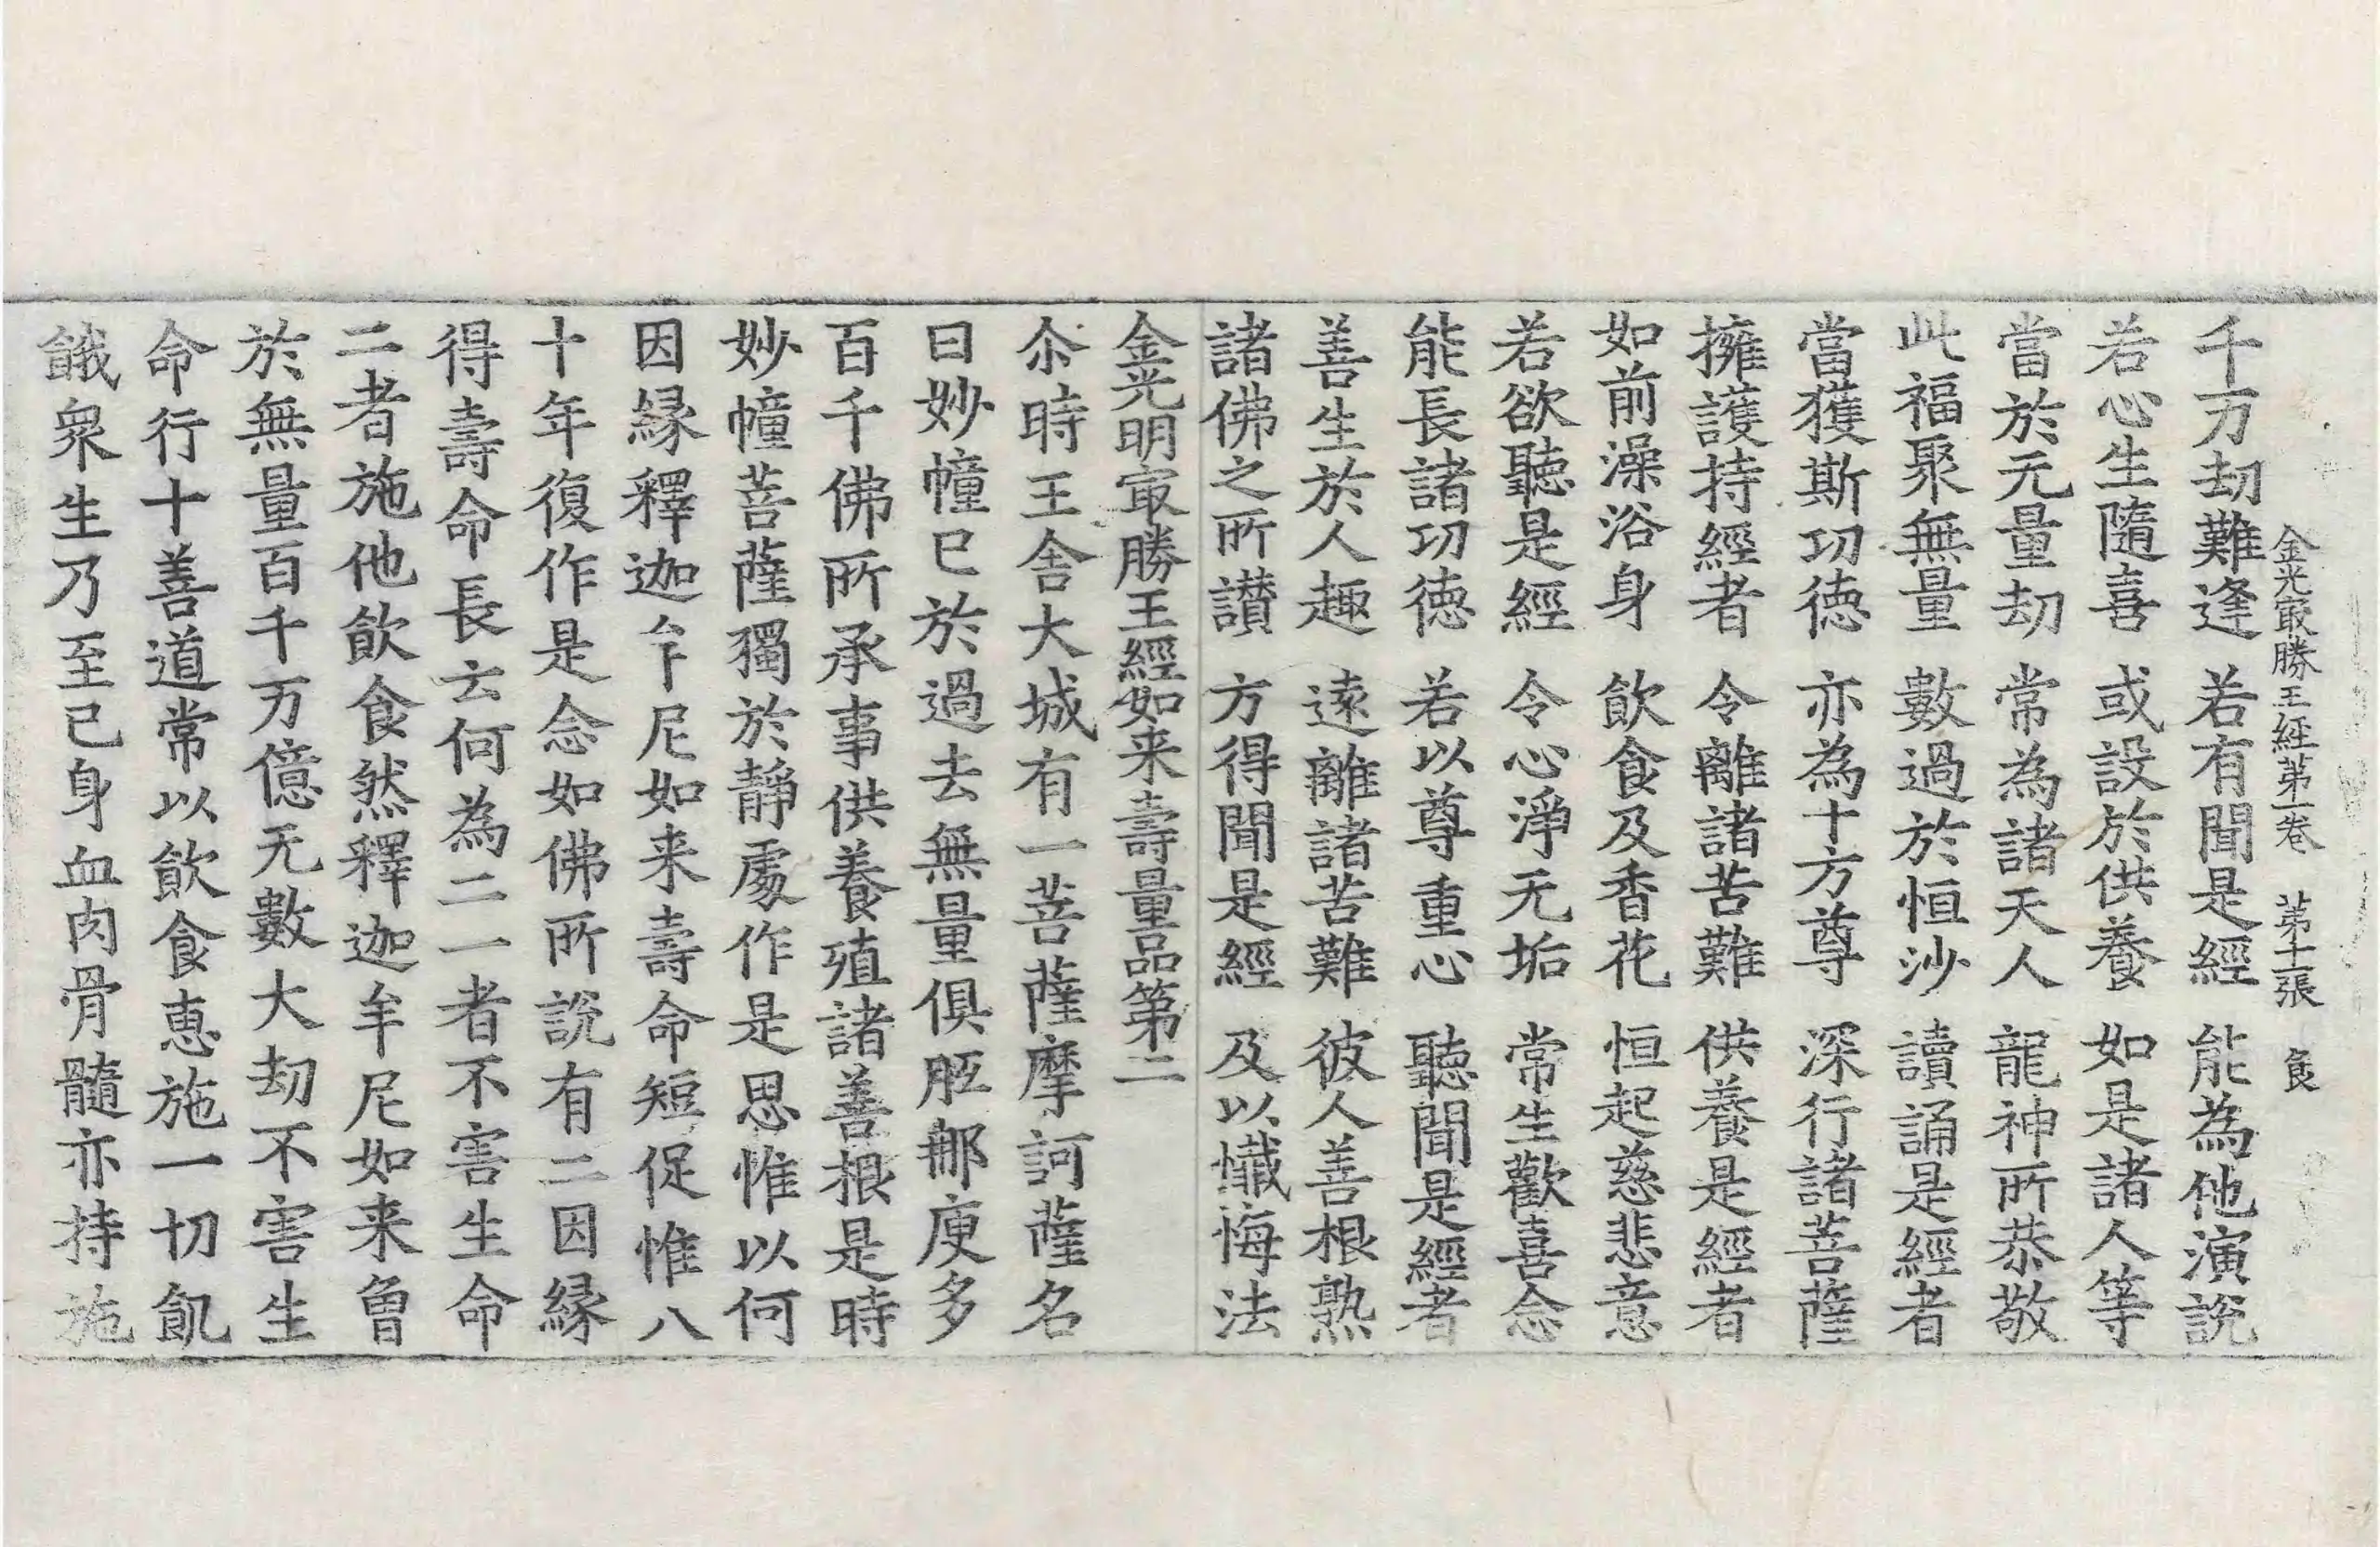 金光寂勝王經第一卷　第十二張　食
千万劫難逢　若有聞是經　能為他演說
若心生隨喜　或設於供養　如是諸人等
當於无量劫　常為諸天人　龍神所恭敬
此福聚無量　數過於恒沙　讀誦是經者
當獲斯功徳　亦為十方尊　深行諸菩薩
擁護持經者　令離諸苦難　供養是經者
如前澡浴身　飲食及香花　恒起慈悲意
若欲聽是經　令心淨无垢　常生歡喜念
能長諸功徳　若以尊重心　聽聞是經者
善生於人趣　遠離諸苦難　彼人善根熟
諸佛之所讃　方得聞是經　及以懺悔法
金光明寂勝王經如来壽量品第二
尒時王舍大城有一菩薩摩訶薩名
曰妙幢已於過去無量俱胝那庾多
百千佛所承事供養殖諸善根是時
妙幢菩薩獨於靜處作是思惟以何
因縁釋迦牟尼如来壽命短促惟八
十年復作是念如佛所說有二因縁
得壽命長云何為二一者不害生命
二者施他飲食然釋迦牟尼如来曾
於無量百千万億无數大劫不害生
命行十善道常以飲食恵施一切飢
餓衆生乃至已身血肉骨髓亦持施